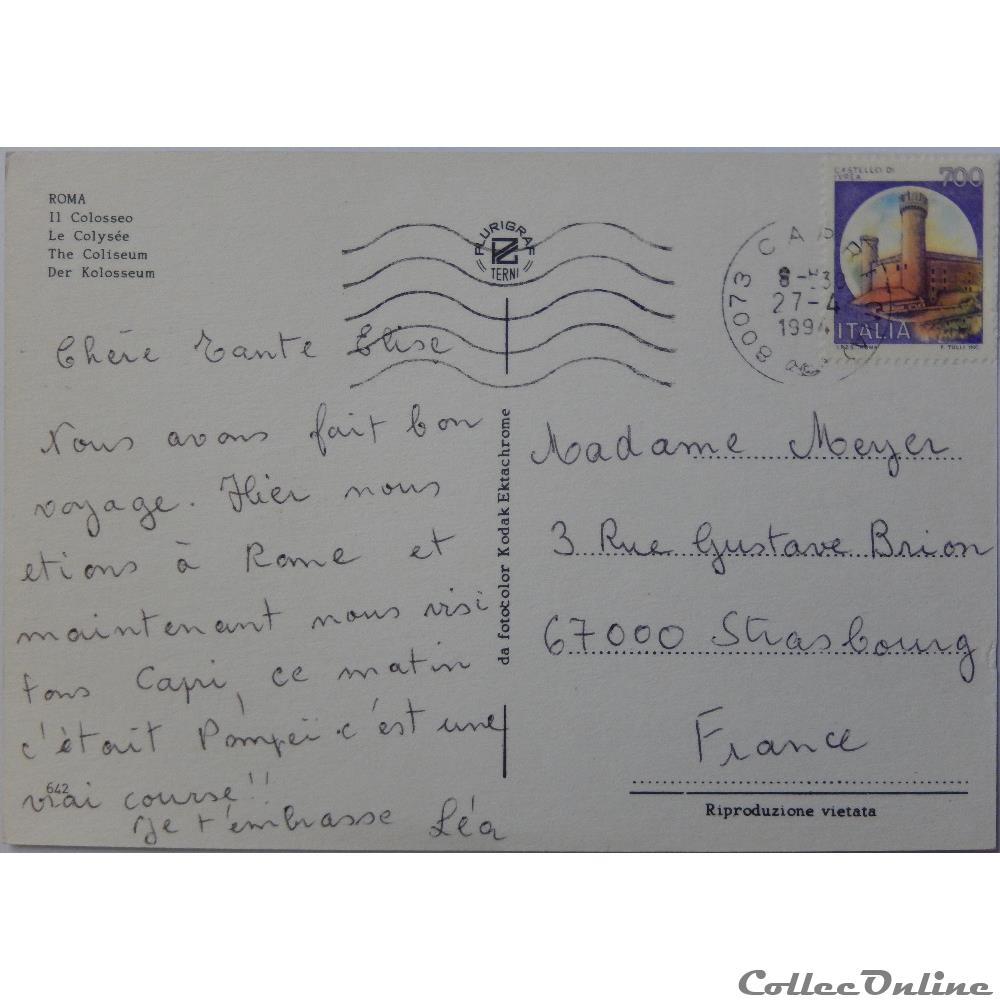 ROMA
Il Colosseo
Le Colysée
The Coliseum
Der Kolosseum
PLURIGRAF
TERNI
CASTELLO DI
IVREA
700
ITALIA
I.P.Z.S. ROMA
80073 CAPRI
8-
27-4
1994
Chère Tante Elise
Nous avons fait bon
voyage. Hier nous
etions à Rome et
maintenant nous visi
tons Capri, ce matin
c'était Pompeï. c'est une
vrai course !!
Je t'embrasse Léa
642
da fotocolor Kodak Ektachrome
Madame Meyer
3 Rue Gustave Brion
67000 Strasbourg
France
Riproduzione vietata
CollecOnline